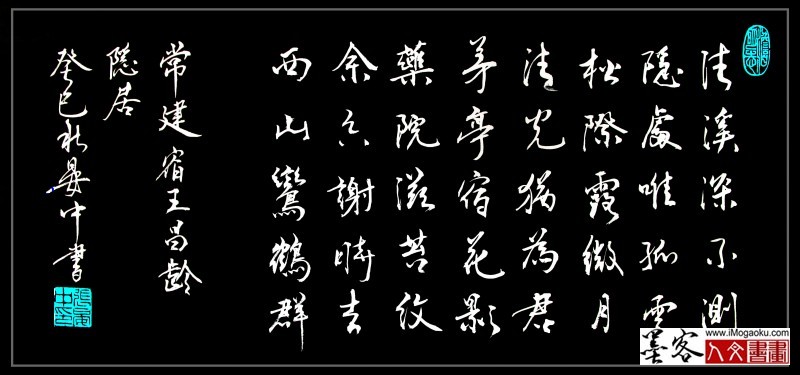 清溪深不測
隱處唯孤雲
松際露微月
清光猶為君
茅亭宿花影
藥院滋苔紋
余亦謝時去
西山鸞鶴群
常建宿王昌齡
隱居
癸巳秋晏中書
張晏中印
墨客
www.iMogaoku.com
人文書畫